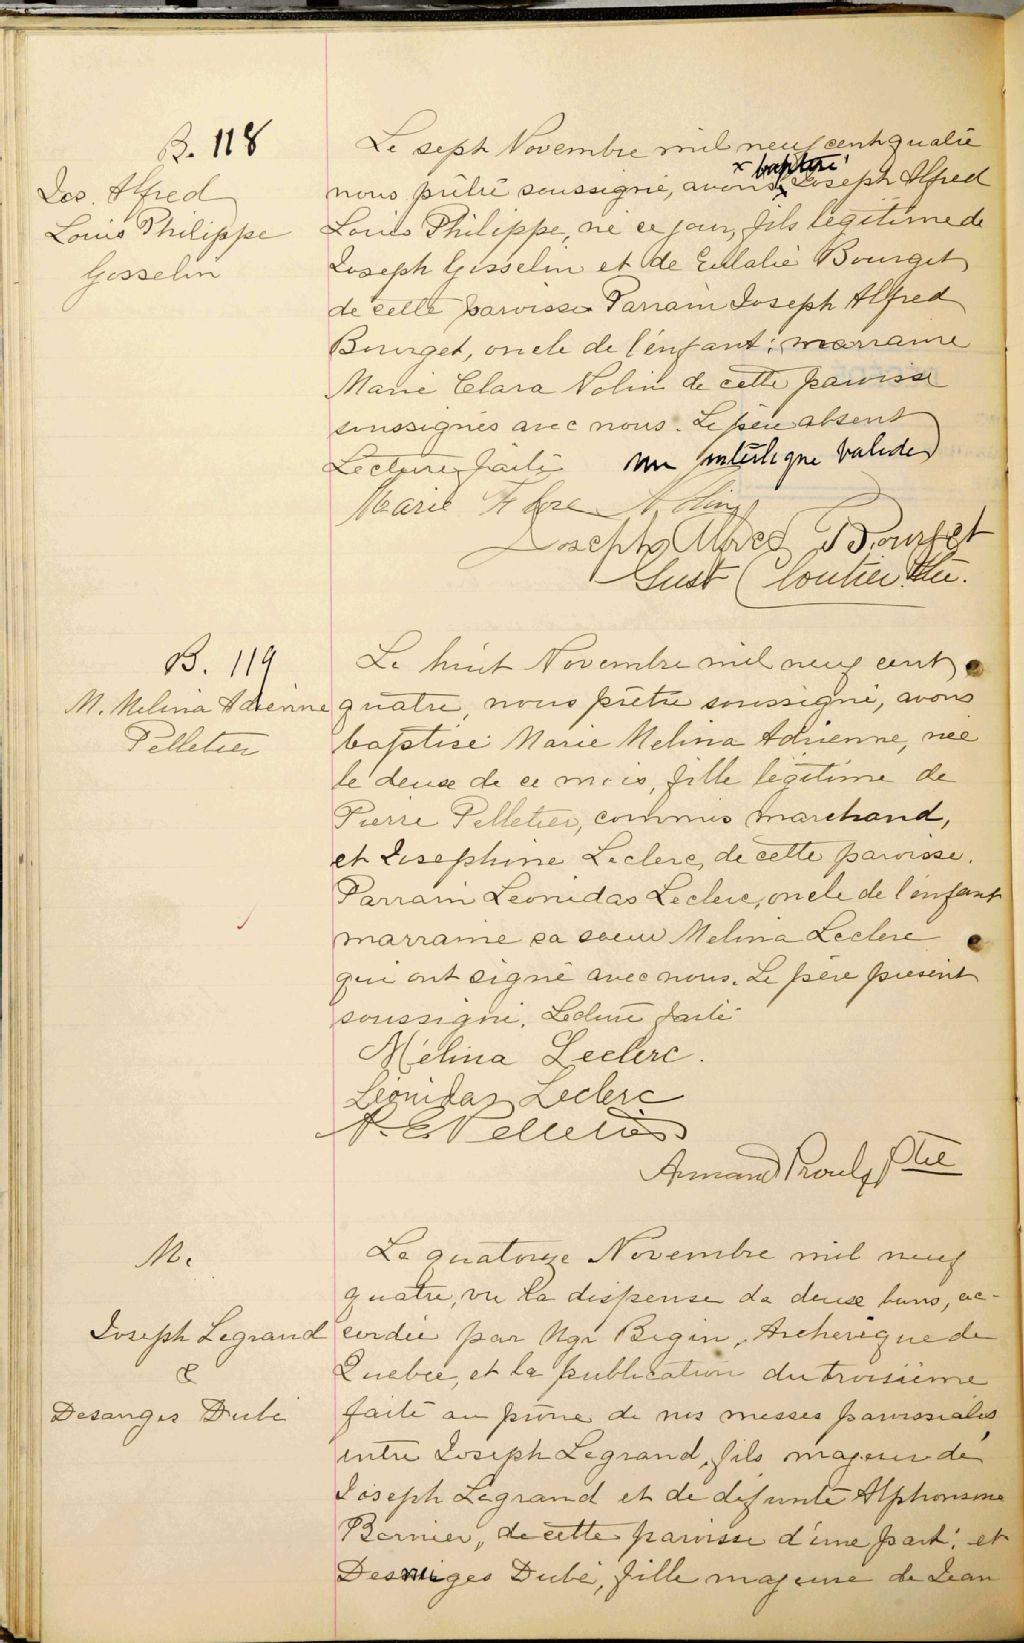 B. 118
Jos. Alfred
Louis Philippe
Gosselin
Le sept Novembre mil neuf cent quatre
x baptisé
nous prêtre soussigné, avons x Joseph Alfred
Louis Philippe, né ce jour, fils légitime de
Joseph Gosselin et de Eulalie Bourget
de cette paroisse Parrain Joseph Alfred
Bourget, oncle de l'enfant; marraine
Marie Clara Nolin de cette paroisse
soussignés avec nous. Le père absent
Lecture faite un interligne valider
Marie Nolin
Joseph Alfred Bourget
Gust Cloutier Ptre.
B. 119
M. Melina Adrienne
Pelletier
Le huit Novembre mil neuf cent
quatre, nous prêtre soussigné, avons
baptisé Marie Melina Adrienne, née
le deux de ce mois, fille légitime de
Pierre Pelletier, commis marchand,
et Josephine Leclerc, de cette paroisse.
Parrain Leonidas Leclerc, oncle de l'enfant
marraine sa soeur Melina Leclerc
qui ont signé avec nous. Le père présent
soussigné. Lecture faite
Mélina Leclerc.
Léonidas Leclerc
P. E. Pelletier
Armand Proulx Ptre
M.
Joseph Legrand
&
Desanges Dubé
Le quatorze Novembre mil neuf
quatre, vu la dispense de deux bans, ac-
cordée par Mgr Begin, Archevêque de
Quebec, et la publication du troisième
faite au prône de nos messes paroissiales
entre Joseph Legrand, fils majeur de
Joseph Legrand et de défunte Alphonsine
Bernier, de cette paroisse d'une part; et
Desanges Dubé, fille majeure de Jean